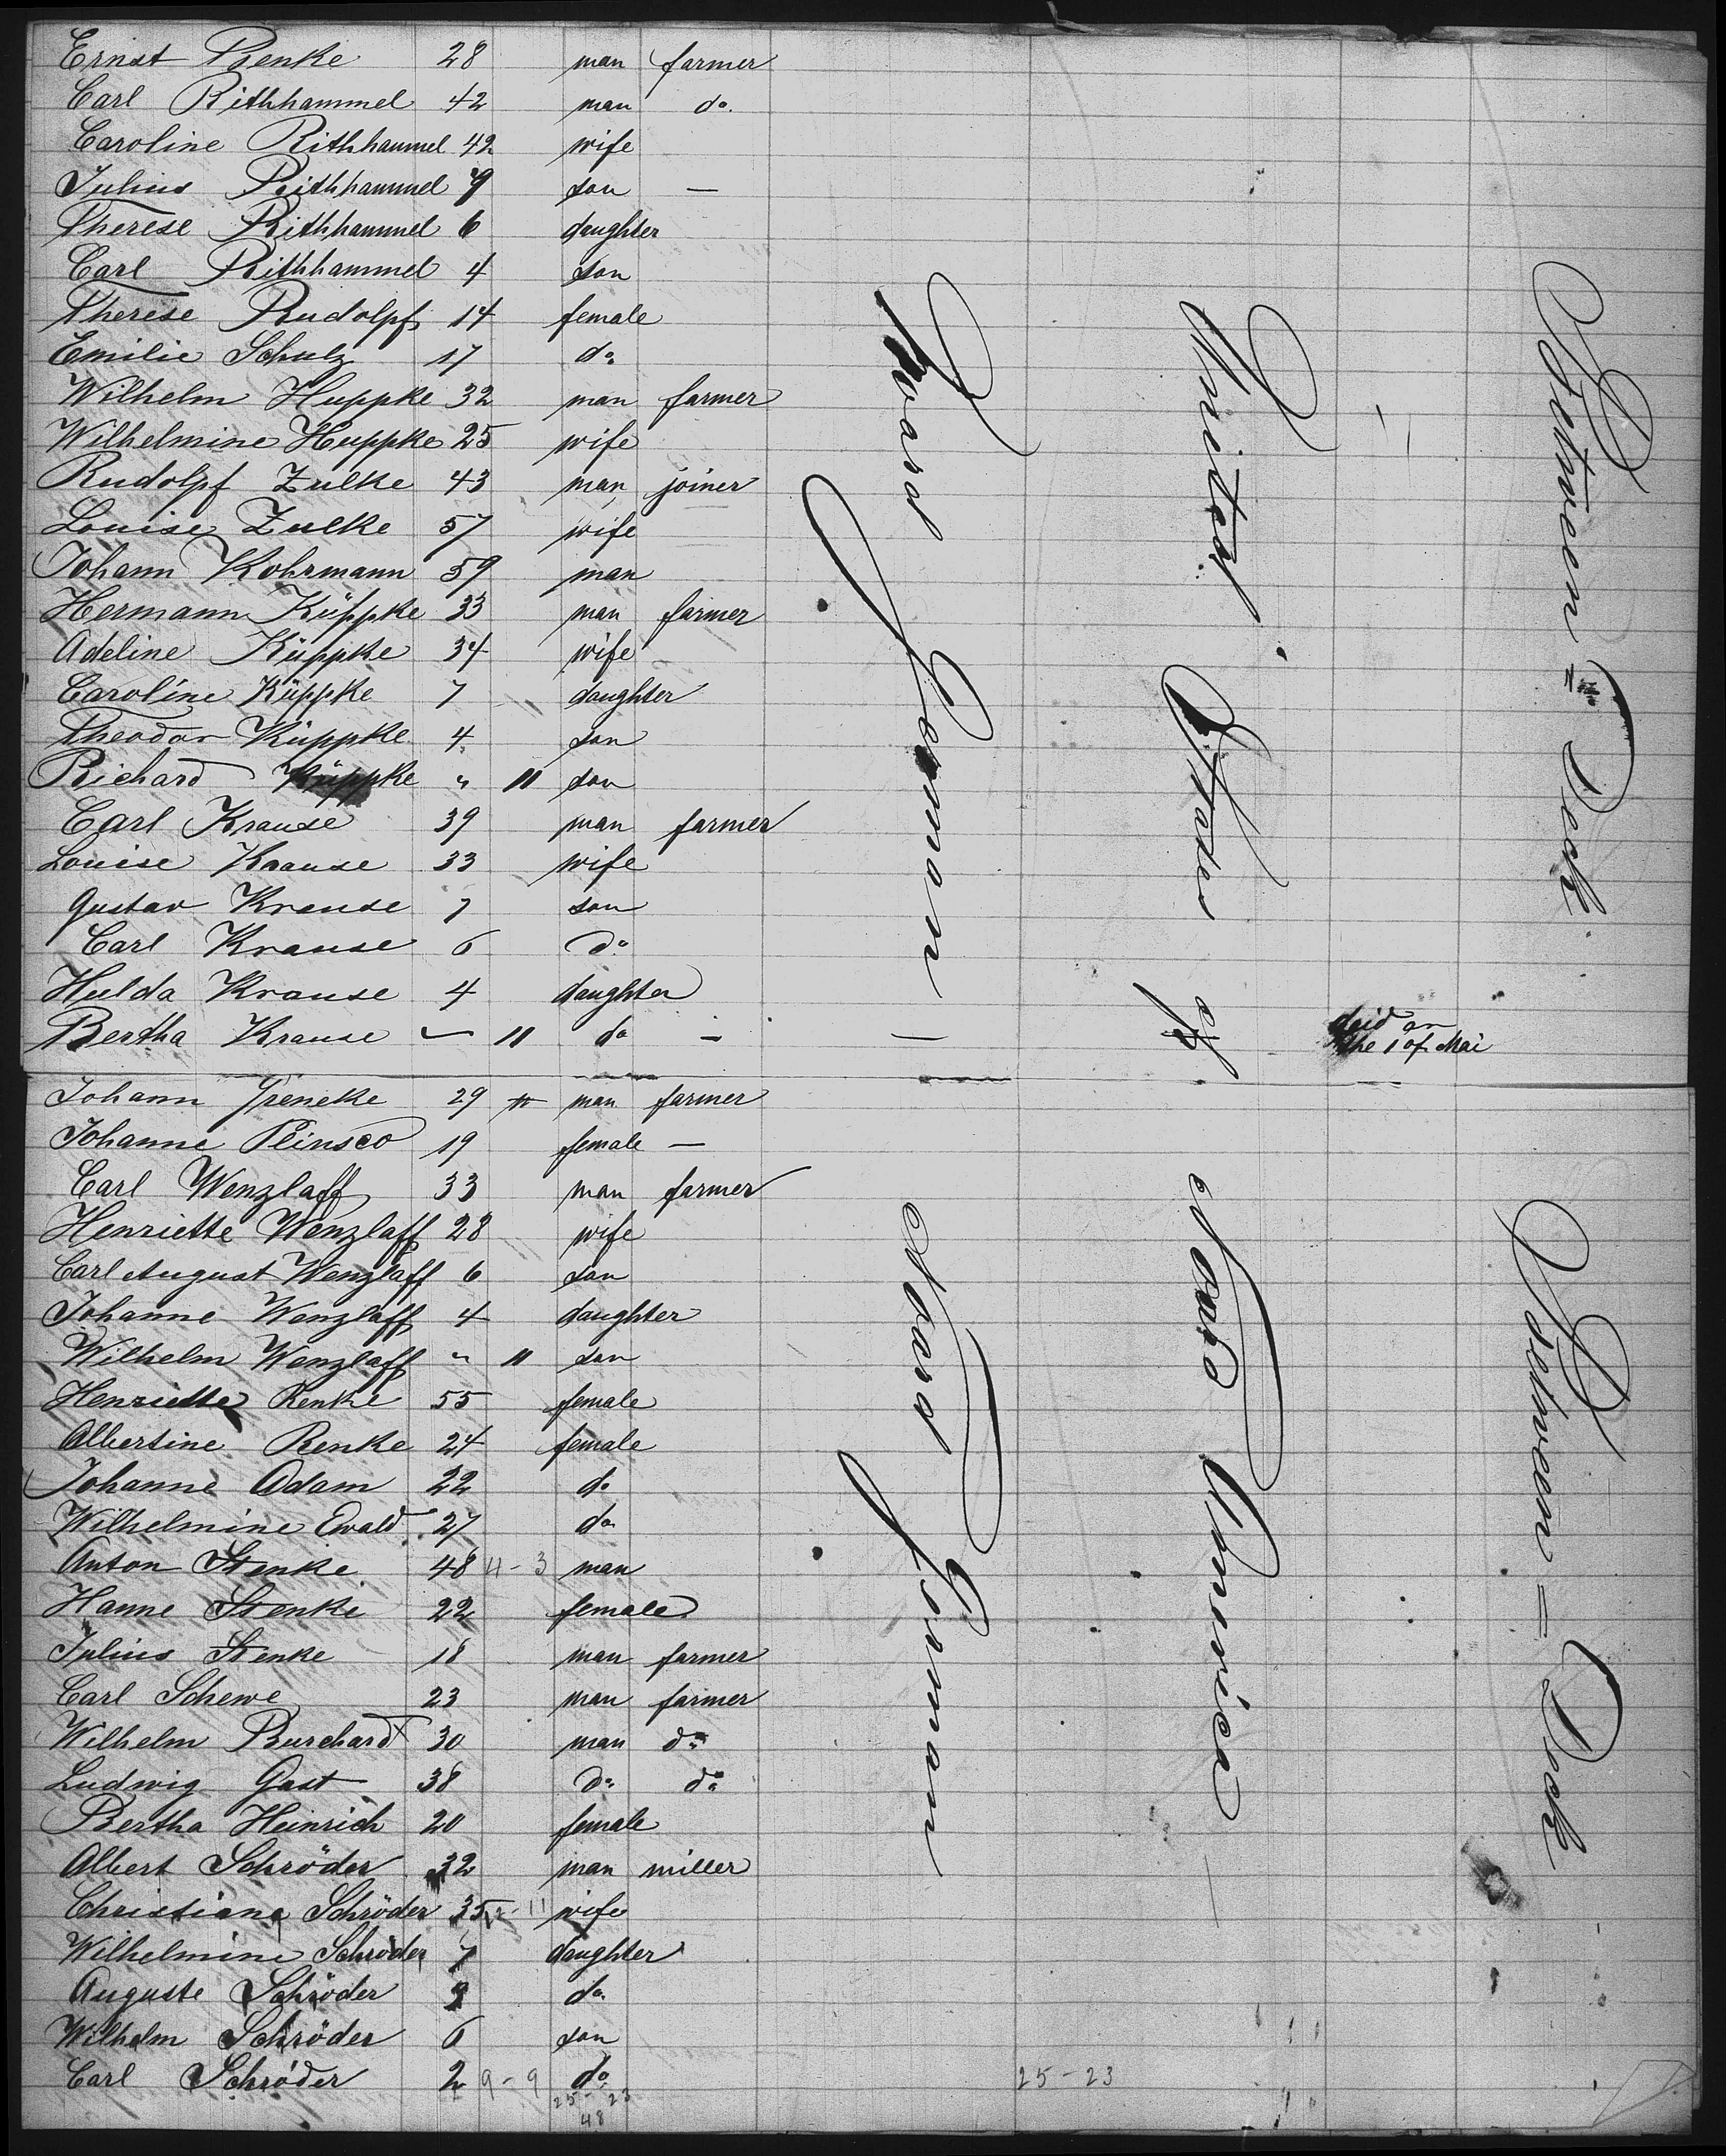 Ernst Renke 28 man farmer
Carl Rithhammel 42 man do.
Caroline Rithhammel 42 wife
Julius Rithhammel 9 son —
Therese Rithhammel 6 daughter
Carl Rithhammel 4 son
Therese Rudolpf 14 female
Emilie Schulz 17 do
Wilhelm Huppke 32 man farmer
Wilhelmine Huppke 25 wife
Rudolpf Zulke 43 man joiner
Louise Zulke 57 wife
Johann Kohrmann 59 man
Hermann Küppke 33 man farmer
Adeline Küppke 34 wife
Caroline Küppke 7 daughter
Theodor Küppke 4 son
Richard Küppke " 11 son
Carl Krause 39 man farmer
Louise Krause 33 wife
Gustav Krause 7 son
Carl Krause 6 do
Hulda Krause 4 daughter
Bertha Krause — 11 do — — died on the 1 of Mai
Johann Greneke 29 man farmer
Johanne 19 female —
Carl Wenzlaff 33 man farmer
Henriette Wenzlaff 28 wife
Carl August Wenzlaff 6 son
Johanne Wenzlaff 4 daughter
Wilhelm Wenzlaff " 11 son
Henriette Renke 55 female
Albertine Renke 24 female
Johanne Adam 22 do
Wilhelmine Ewald 27 do
Anton Stenke 48 11-3 man
Hanne Stenke 22 female
Julius Stenke 18 man farmer
Carl Schewe 23 man farmer
Wilhelm Burchard 30 man do
Ludwig Gast 38 do do
Bertha Heinrich 20 female
Albert Schröder 32 man miller
Christiane Schröder 35 wife
Wilhelmine Schröder 7 daughter
Auguste Schröder 9 do
Wilhelm Schröder 6 son
Carl Schröder 2 9-9 do
25-23
48
25-23
North Germany
North Germany
United States of North America
Between = Deck
Between = Deck